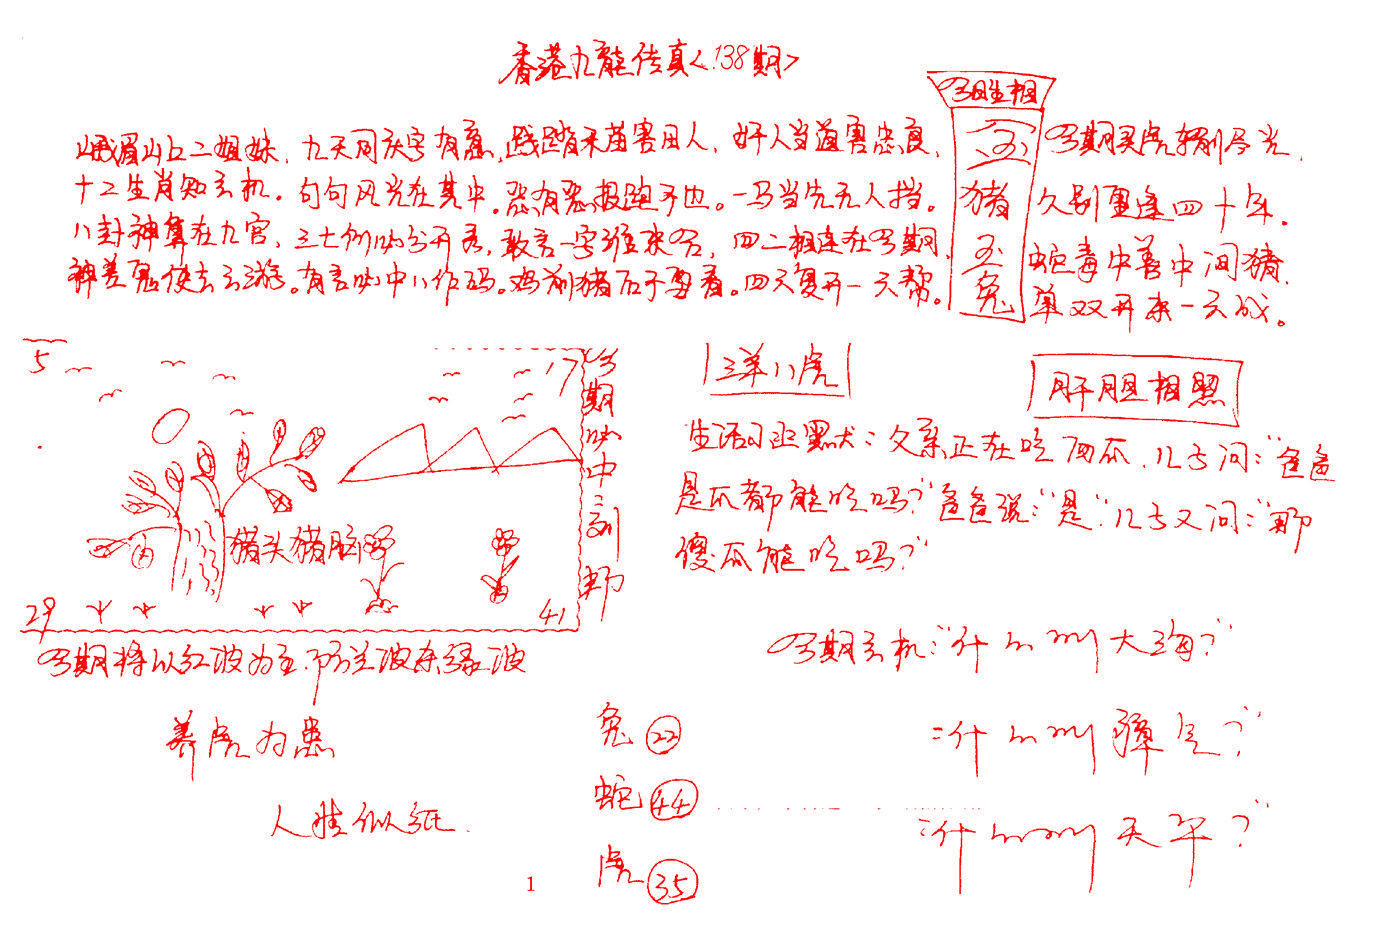 香港九龍传真<138期>
今期生相
峨眉山上二姐妹，九天同庆字有意，践踏禾苗害田人，奸人当道害忠良，
十二生肖知玄机。句句风光在其中。恶有恶报跑不也。一马当先无人挡。
八卦神算在九宫，三七例必分开看，敢言一字谁来答，四二相连在今期，
神差鬼使去云游。有言必中八作码。鸡前猪后不要看。四天复开一天帮。
金
猪
玉
兔
今期灵虎特别号光，
久别重逢四十年。
蛇毒中善中间猪，
单双开来一天成。
5
17
29
41
猪头猪脑
今期必中三别野
三羊八虎
肝胆相照
生活习迟黑犬：父亲正在吃西瓜，儿子问：“爸爸
是瓜都能吃吗？”爸爸说：“是”儿子又问：“那
傻瓜能吃吗？”
今期将以红波为主，防兰波杀绿波
养虎为患
人情似纸
兔 22
蛇 44
虎 35
今期玄机：“什么叫大海？”
：“什么叫 ？”
：“什么叫天平？”
1